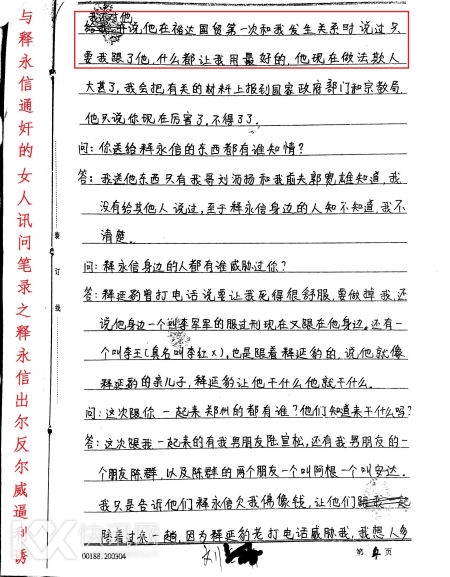 与释永信通奸的女人讯问笔录之释永信出尔反尔威逼利诱
给我并说,他在裕达国贸第一次和我发生关系时说过只
要我跟了他,什么都让我用最好的,他现在做法欺人
大甚了,我会把有关的材料上报到国家政府部门和宗教局.
他只说你现在厉害了,不得了了.
问:你送给释永信的东西都有谁知情?
答:我送他东西只有我哥刘
和我前夫郭宽雄知道,我
没有给其他人说过,至于释永信身边的人知不知道,我不
清楚.
问:释永信身边的人都有谁威胁过你?
答:释延豹曾打电话说要让我死得很舒服,要做掉我,还
说他身边一个叫李军军的服过刑现在又跟在他身边.还有一
个叫李王(真名叫李红×).也是跟着释延豹的,说他就像
释延豹的亲儿子,释延豹让他干什么他就干什么.
问:这次跟你一起来郑州的都有谁?他们知道来干什么吗?
答:这次跟我一起来的有我男朋友陆宣松,还有我男朋友的一
个朋友陈群,以及陈群的两个朋友一个叫阿根一个叫安达.
我只是告诉他们释永信欠我佛像钱,让他们
一起
陪着过来一趟,因为释延豹老打电话威胁我,我想人多
装
订
线
00188.200304
第4页